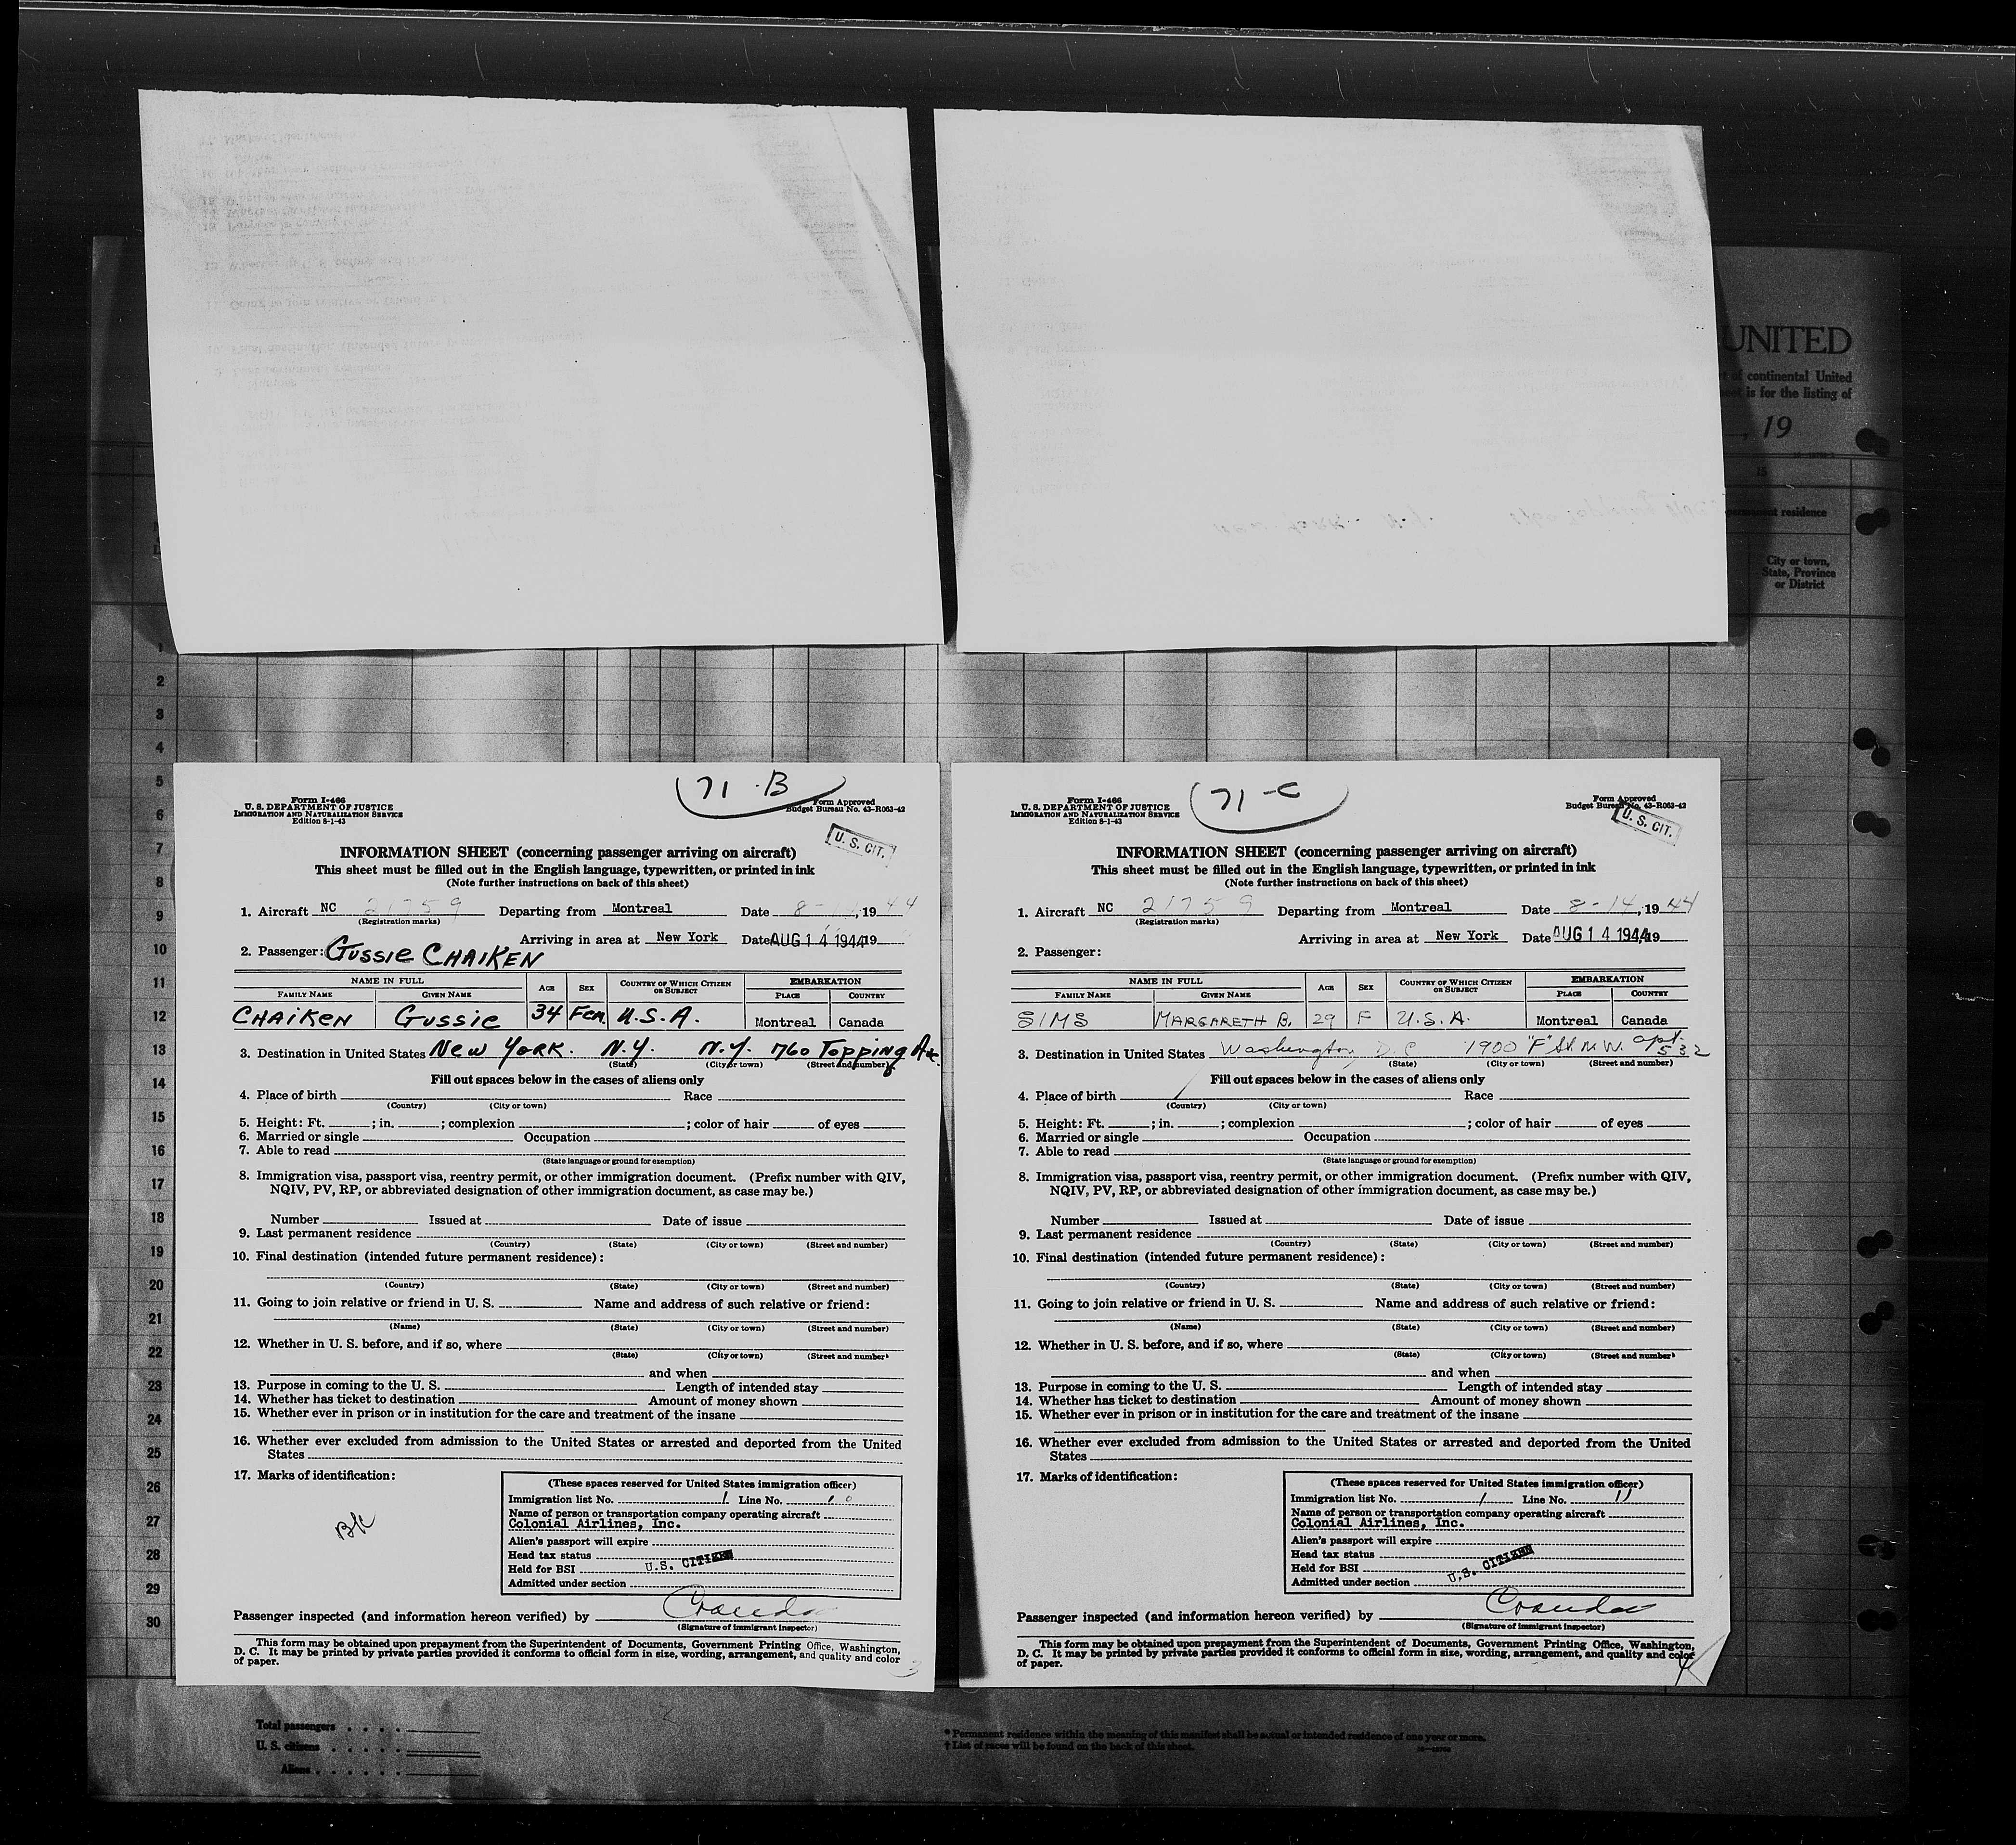 UNITED
of continental United
sheet is for the listing of
, 19
15
permanent residence
City or town,
State, Province
or District
1
2
3
4
5
6
7
8
9
10
11
12
13
14
15
16
17
18
19
20
21
22
23
24
25
26
27
28
29
30
71-B
Form I-466
U. S. DEPARTMENT OF JUSTICE
IMMIGRATION AND NATURALIZATION SERVICE
Edition 8-1-43
Form Approved
Budget Bureau No. 43-R063-42
U. S. CIT.
INFORMATION SHEET (concerning passenger arriving on aircraft)
This sheet must be filled out in the English language, typewritten, or printed in ink
(Note further instructions on back of this sheet)
1. Aircraft NC 21759 Departing from Montreal Date 8-14, 1944
(Registration marks)
Arriving in area at New York Date AUG 14 1944 19
2. Passenger: GUSSIE CHAIKEN
NAME IN FULL AGE SEX COUNTRY OF WHICH CITIZEN OR SUBJECT EMBARKATION
FAMILY NAME GIVEN NAME PLACE COUNTRY
CHAIKEN GUSSIE 34 Fem. U.S.A. Montreal Canada
3. Destination in United States New York. N.Y. N.Y. 1760 Topping Ave.
(State) (City or town) (Street and number)
Fill out spaces below in the cases of aliens only
4. Place of birth Race
(Country) (City or town)
5. Height: Ft. ; in. ; complexion ; color of hair of eyes
6. Married or single Occupation
7. Able to read
(State language or ground for exemption)
8. Immigration visa, passport visa, reentry permit, or other immigration document. (Prefix number with QIV,
NQIV, PV, RP, or abbreviated designation of other immigration document, as case may be.)
Number Issued at Date of issue
9. Last permanent residence
(Country) (State) (City or town) (Street and number)
10. Final destination (intended future permanent residence):
(Country) (State) (City or town) (Street and number)
11. Going to join relative or friend in U. S. Name and address of such relative or friend:
(Name) (State) (City or town) (Street and number)
12. Whether in U. S. before, and if so, where
(State) (City or town) (Street and number)
and when
13. Purpose in coming to the U. S. Length of intended stay
14. Whether has ticket to destination Amount of money shown
15. Whether ever in prison or in institution for the care and treatment of the insane
16. Whether ever excluded from admission to the United States or arrested and deported from the United
States
17. Marks of identification:
(These spaces reserved for United States immigration officer)
Immigration list No. 1 Line No. 10
Name of person or transportation company operating aircraft
Colonial Airlines, Inc.
Alien's passport will expire
Head tax status
U.S. CITIZEN
Held for BSI
Admitted under section
Passenger inspected (and information hereon verified) by
(Signature of immigrant inspector)
This form may be obtained upon prepayment from the Superintendent of Documents, Government Printing Office, Washington,
D. C. It may be printed by private parties provided it conforms to official form in size, wording, arrangement, and quality and color
of paper.
3
71-C
Form I-466
U. S. DEPARTMENT OF JUSTICE
IMMIGRATION AND NATURALIZATION SERVICE
Edition 8-1-43
Form Approved
Budget Bureau No. 43-R063-42
U. S. CIT.
INFORMATION SHEET (concerning passenger arriving on aircraft)
This sheet must be filled out in the English language, typewritten, or printed in ink
(Note further instructions on back of this sheet)
1. Aircraft NC 21759 Departing from Montreal Date 8-14, 1944
(Registration marks)
Arriving in area at New York Date AUG 14 1944 19
2. Passenger:
NAME IN FULL AGE SEX COUNTRY OF WHICH CITIZEN OR SUBJECT EMBARKATION
FAMILY NAME GIVEN NAME PLACE COUNTRY
SIMS MARGARETH B. 29 F U.S.A. Montreal Canada
3. Destination in United States Washington D C 1900 "F" St. N.W. apt. 532
(State) (City or town) (Street and number)
Fill out spaces below in the cases of aliens only
4. Place of birth Race
(Country) (City or town)
5. Height: Ft. ; in. ; complexion ; color of hair of eyes
6. Married or single Occupation
7. Able to read
(State language or ground for exemption)
8. Immigration visa, passport visa, reentry permit, or other immigration document. (Prefix number with QIV,
NQIV, PV, RP, or abbreviated designation of other immigration document, as case may be.)
Number Issued at Date of issue
9. Last permanent residence
(Country) (State) (City or town) (Street and number)
10. Final destination (intended future permanent residence):
(Country) (State) (City or town) (Street and number)
11. Going to join relative or friend in U. S. Name and address of such relative or friend:
(Name) (State) (City or town) (Street and number)
12. Whether in U. S. before, and if so, where
(State) (City or town) (Street and number)
and when
13. Purpose in coming to the U. S. Length of intended stay
14. Whether has ticket to destination Amount of money shown
15. Whether ever in prison or in institution for the care and treatment of the insane
16. Whether ever excluded from admission to the United States or arrested and deported from the United
States
17. Marks of identification:
(These spaces reserved for United States immigration officer)
Immigration list No. 1 Line No. 11
Name of person or transportation company operating aircraft
Colonial Airlines, Inc.
Alien's passport will expire
Head tax status
U.S. CITIZEN
Held for BSI
Admitted under section
Passenger inspected (and information hereon verified) by
(Signature of immigrant inspector)
This form may be obtained upon prepayment from the Superintendent of Documents, Government Printing Office, Washington,
D. C. It may be printed by private parties provided it conforms to official form in size, wording, arrangement, and quality and color
of paper.
4
Total passengers
U. S. citizens
Aliens
* Permanent residence within the meaning of this manifest shall be actual or intended residence of one year or more.
† List of races will be found on the back of this sheet.